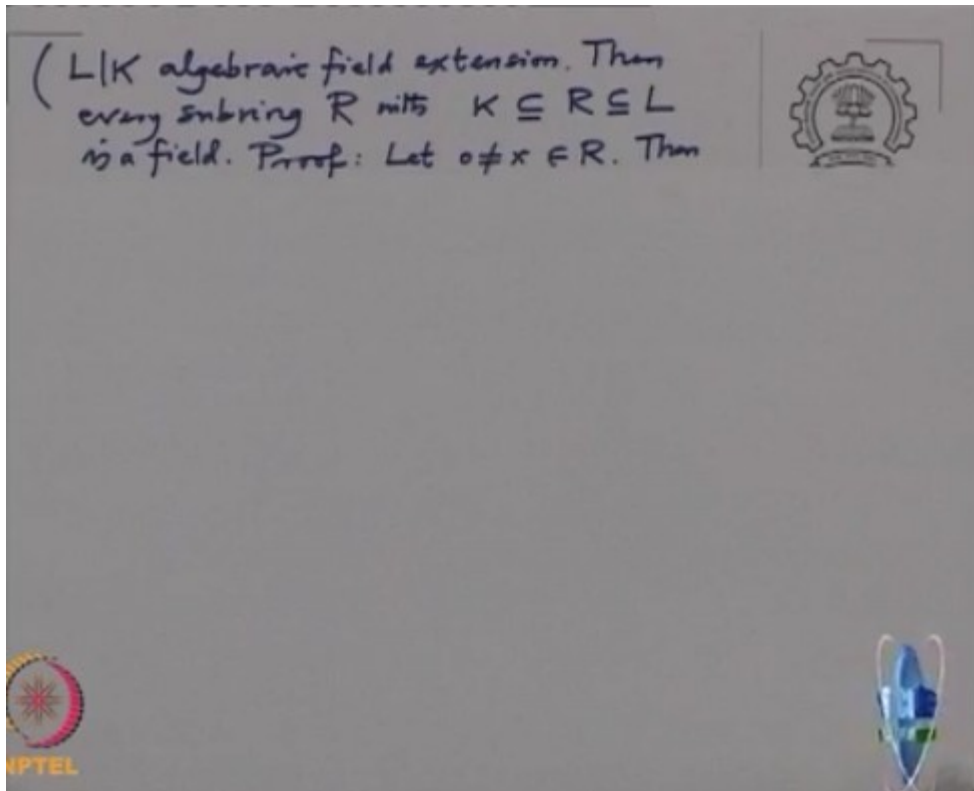 ( L|K algebraic field extension. Then
every subring R with K ⊆ R ⊆ L
is a field. Proof: Let 0 ≠ x ∈ R. Then
NPTEL